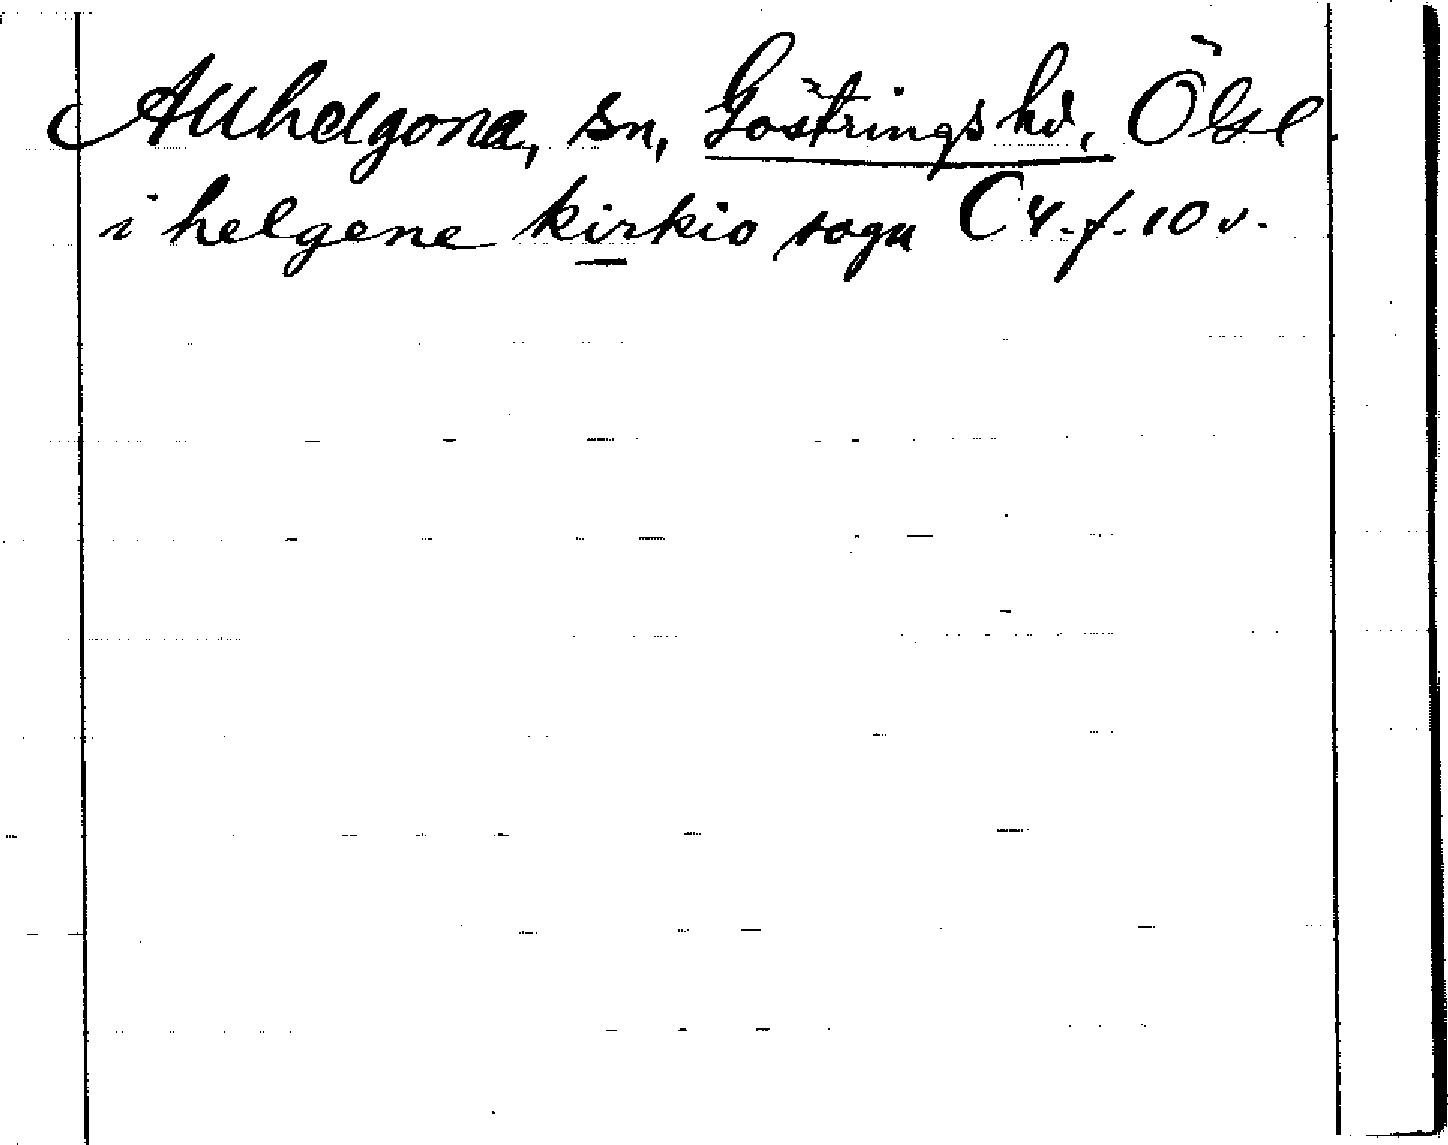 Allhelgona, sn, Göstrings hd, Ögl.
i helgene kirkio sogn C 4. f. 10 v.